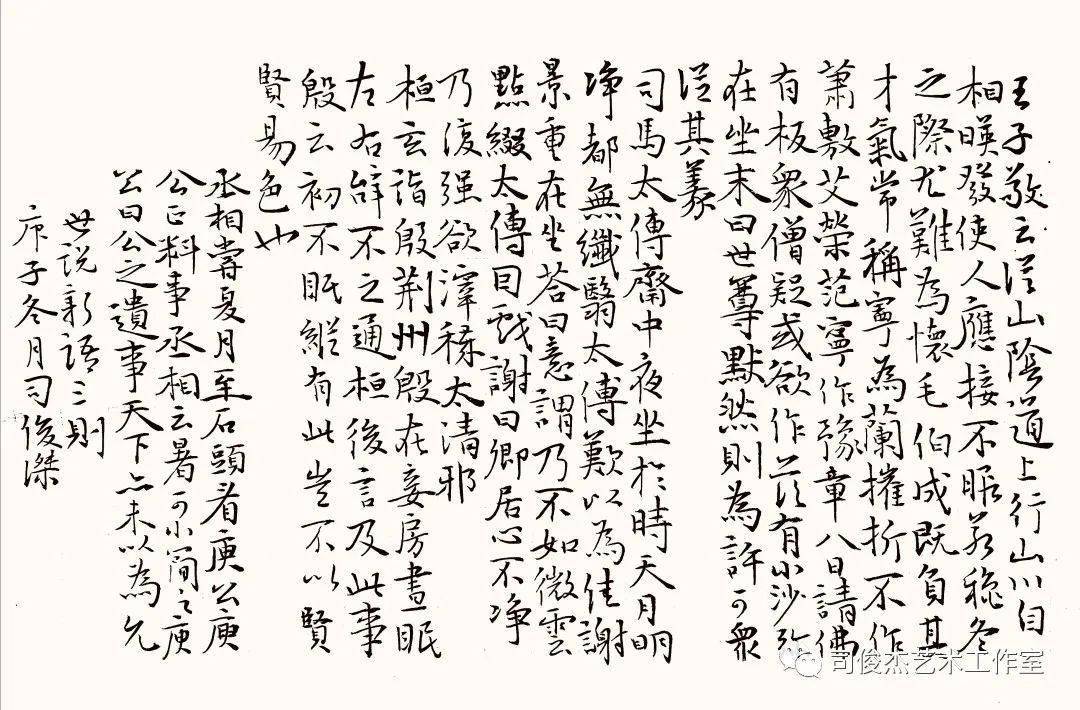 王子敬云從山陰道上行山川自
相暎發使人應接不暇若穐冬
之際尤難為懷毛伯成既負其
才氣常稱寧為蘭摧折不作
蕭敷艾榮范寧作豫章八日請佛
有板衆僧疑或欲作答有小沙弥
在坐末曰世尊默然則為許可衆
從其義
司馬太傅齋中夜坐於時天月明
净都無纖翳太傅歎以為佳謝
景重在坐荅曰意謂乃不如微雲
點綴太傅曰戯謝曰卿居心不净
乃復强欲滓穢太清邪
桓玄詣殷荆州殷在妾房晝眠
左右辞不之通桓後言及此事
殷云初不眠縦有此豈不以賢
賢易色也
丞相嘗夏月至石頭看庾公庾
公正料事丞相云暑可小簡之庾
公曰公之遺事天下亦未以為允
世説新語三則
庚子冬月司俊傑
司俊杰艺术工作室